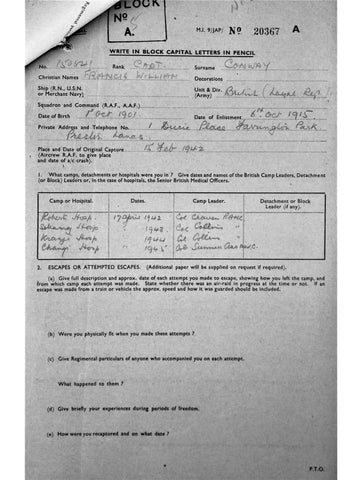 BLOCK
No
A.
M.I. 9/JAP/ No 20367 A
WRITE IN BLOCK CAPITAL LETTERS IN PENCIL
No. Rank CAPT. Surname CONWAY
Christian Names FRANCIS WILLIAM Decorations
Ship (R.N., U.S.N. or Merchant Navy) Unit & Div. (Army) British (Loyal Reg.)
Squadron and Command (R.A.F., A.A.F.)
Date of Birth 1st Oct 1901 Date of Enlistment 6th Oct 1915
Private Address and Telephone No. 1 Place Farrington Park
Preston Lancs.
Place and Date of Original Capture 15 Feb 1942
(Aircrew R.A.F. to give place
and date of a/c crash).
1. What camps, detachments or hospitals were you in ? Give dates and names of the British Camp Leaders, Detachment
(or Block) Leaders or, in the case of hospitals, the Senior British Medical Officers.
Camp or Hospital. Dates. Camp Leader. Detachment or Block Leader (if any).
Roberts Hosp. 17 April 1942 Col Craven RAMC.
Hosp " 1943. Col Collins "
Kranji Hosp " 1944 Col Collins "
Changi Hosp " 1945 Col
2. ESCAPES OR ATTEMPTED ESCAPES. (Additional paper will be supplied on request if required).
(a) Give full description and approx. date of each attempt you made to escape, showing how you left the camp, and
from which camp each attempt was made. State whether there was an air-raid in progress at the time or not. If an
escape was made from a train or vehicle the approx. speed and how it was guarded should be included.
(b) Were you physically fit when you made these attempts ?
(c) Give Regimental particulars of anyone who accompanied you on each attempt.
What happened to them ?
(d) Give briefly your experiences during periods of freedom.
(e) How were you recaptured and on what date ?
P.T.O.